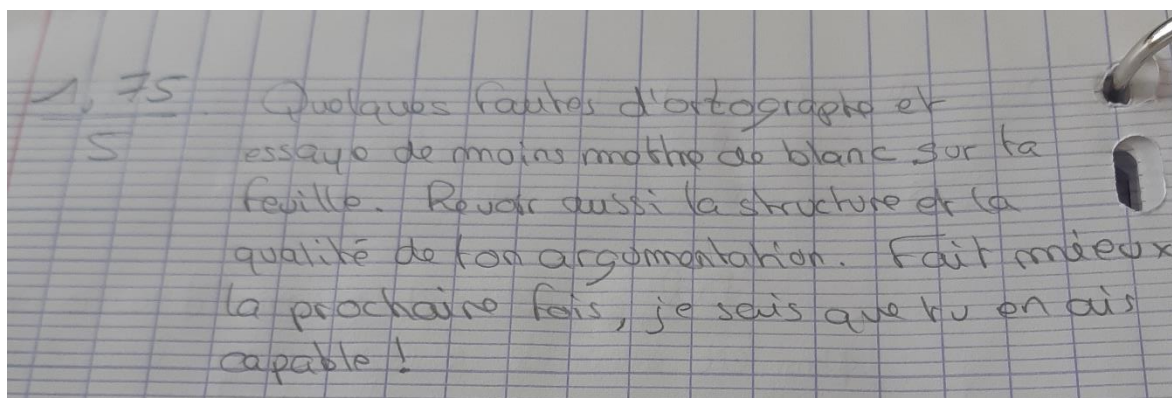 1,75 Quelques fautes d'ortographe et
5 essaye de moins mettre de blanc sur ta
feuille. Revoir aussi la structure et la
qualité de ton argumentation. Fait mieux
la prochaine fois, je sais que tu en ais
capable !